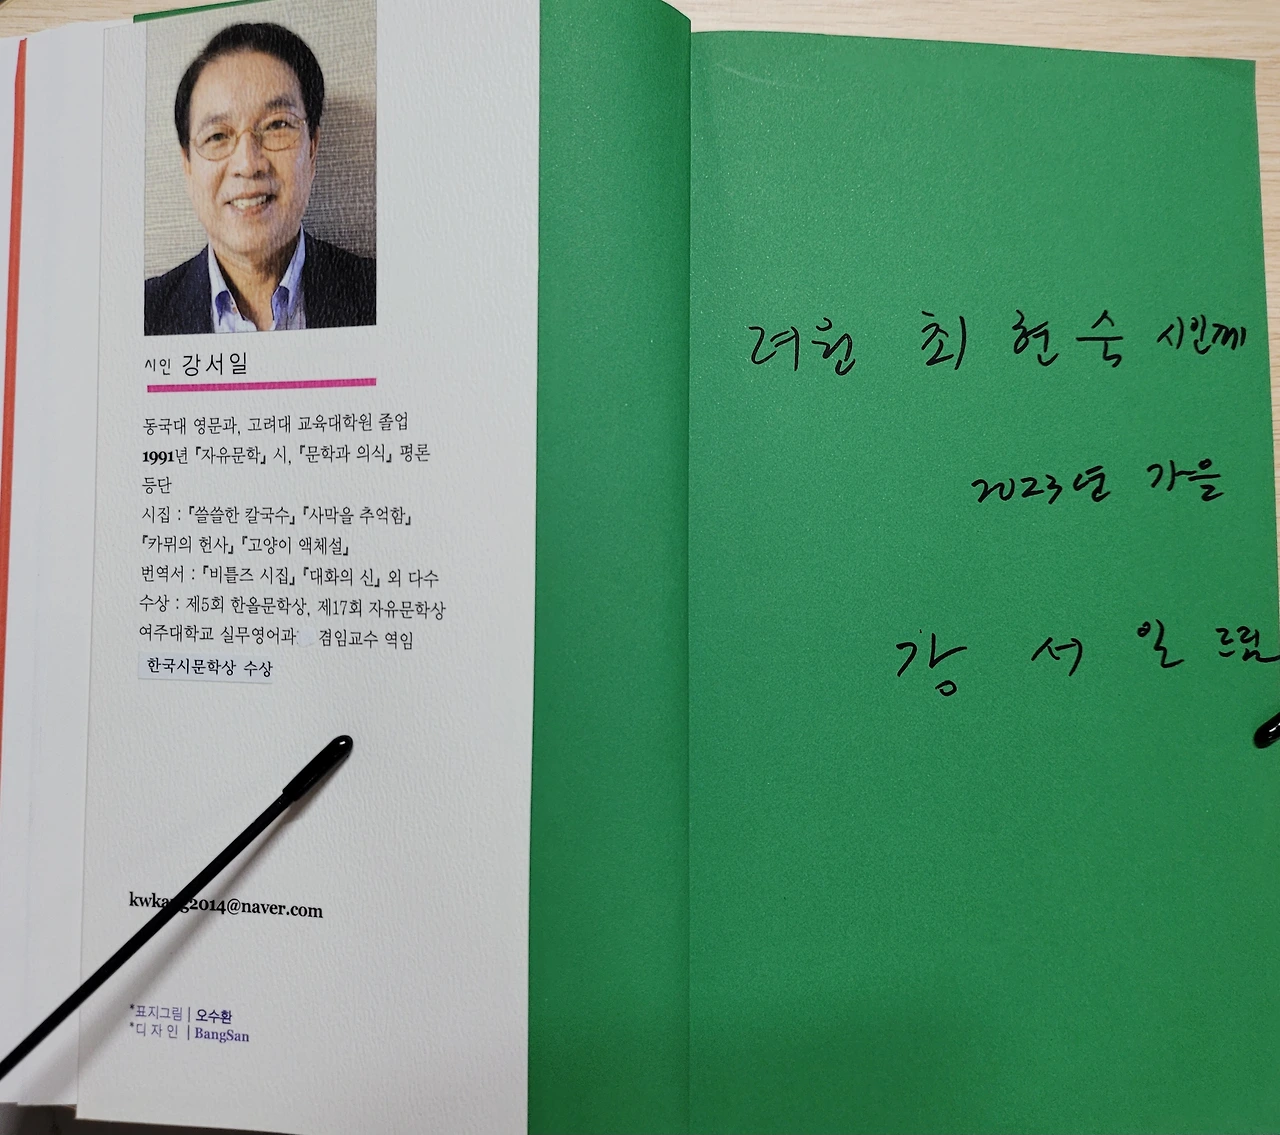 시인 강서일
동국대 영문과, 고려대 교육대학원 졸업
1991년 『자유문학』 시, 『문학과 의식』 평론
등단
시집 : 『쓸쓸한 칼국수』 『사막을 추억함』
『카뮈의 헌사』 『고양이 액체설』
번역서 : 『비틀즈 시집』 『대화의 신』 외 다수
수상 : 제5회 한올문학상, 제17회 자유문학상
여주대학교 실무영어과 겸임교수 역임
한국시문학상 수상
kwkang2014@naver.com
*표지그림 | 오수환
*디자인 | BangSan
려원 최현숙 시인께
2023년 가을
강서일 드림